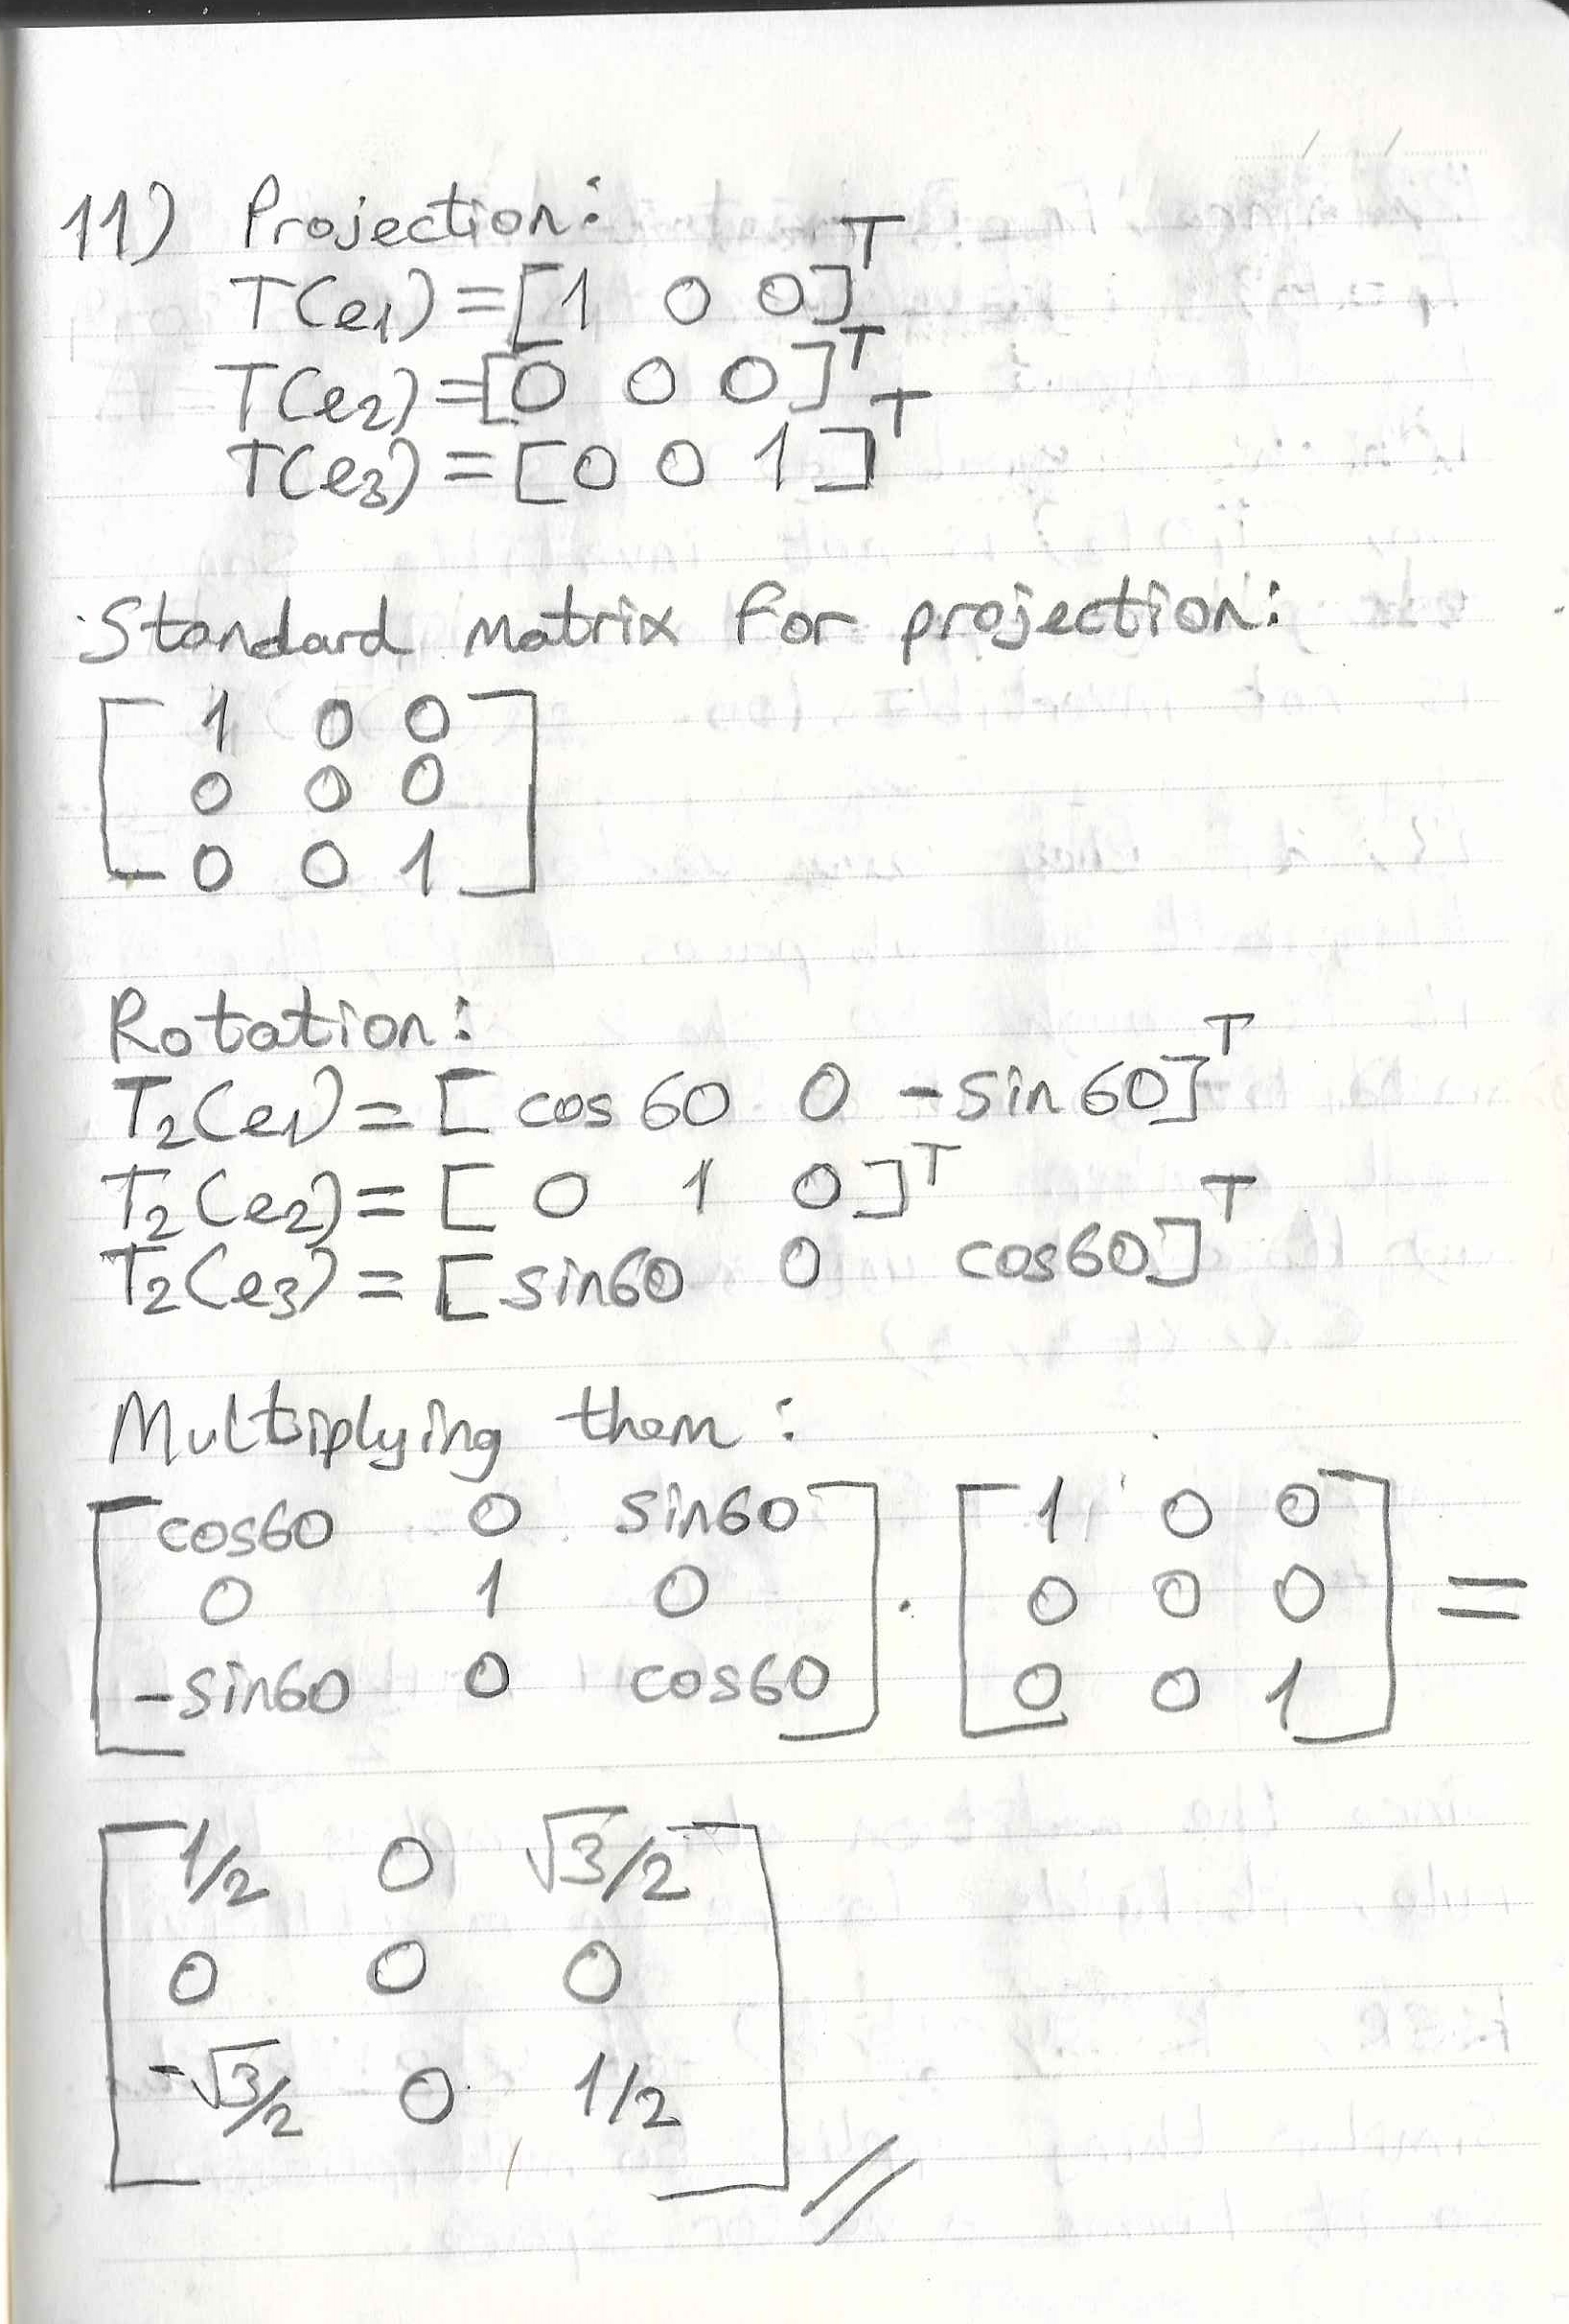 11) Projection:
T(e1) = [1 0 0]^T
T(e2) = [0 0 0]^T
T(e3) = [0 0 1]^T
Standard matrix for projection:
[ 1 0 0
0 0 0
0 0 1 ]
Rotation:
T2(e1) = [ cos 60 0 -sin 60]^T
T2(e2) = [ 0 1 0]^T
T2(e3) = [ sin60 0 cos60]^T
Multiplying them:
[ cos60 0 sin60 ] . [ 1 0 0 ] =
[ 0 1 0 ] [ 0 0 0 ]
[ -sin60 0 cos60 ] [ 0 0 1 ]
[ 1/2 0 √3/2
0 0 0
-√3/2 0 1/2 ] //